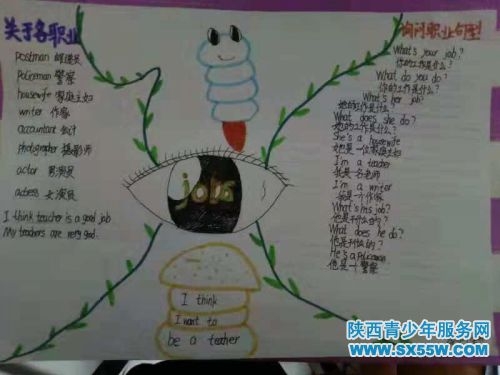 关于各职业
postman 邮递员
policeman 警察
housewife 家庭主妇
writer 作家
accountant 会计
photographer 摄影师
actor 男演员
actress 女演员
I think teacher is a good job
My teachers are very good.
jobs
I think
I want to
be a teacher
询问职业句型
What's your job?
你的工作是什么?
What do you do?
你的工作是什么?
What's her job?
她的工作是什么?
What does she do?
她的工作是什么?
She's a housewife
她是一位家庭主妇
I'm a teacher
我是一名老师
I'm a writer
我是一个作家
What's his job?
他是干什么的?
What does he do?
他是干什么的?
He's a policeman
他是一个警察
陕西青少年服务网
www.sx55w.com